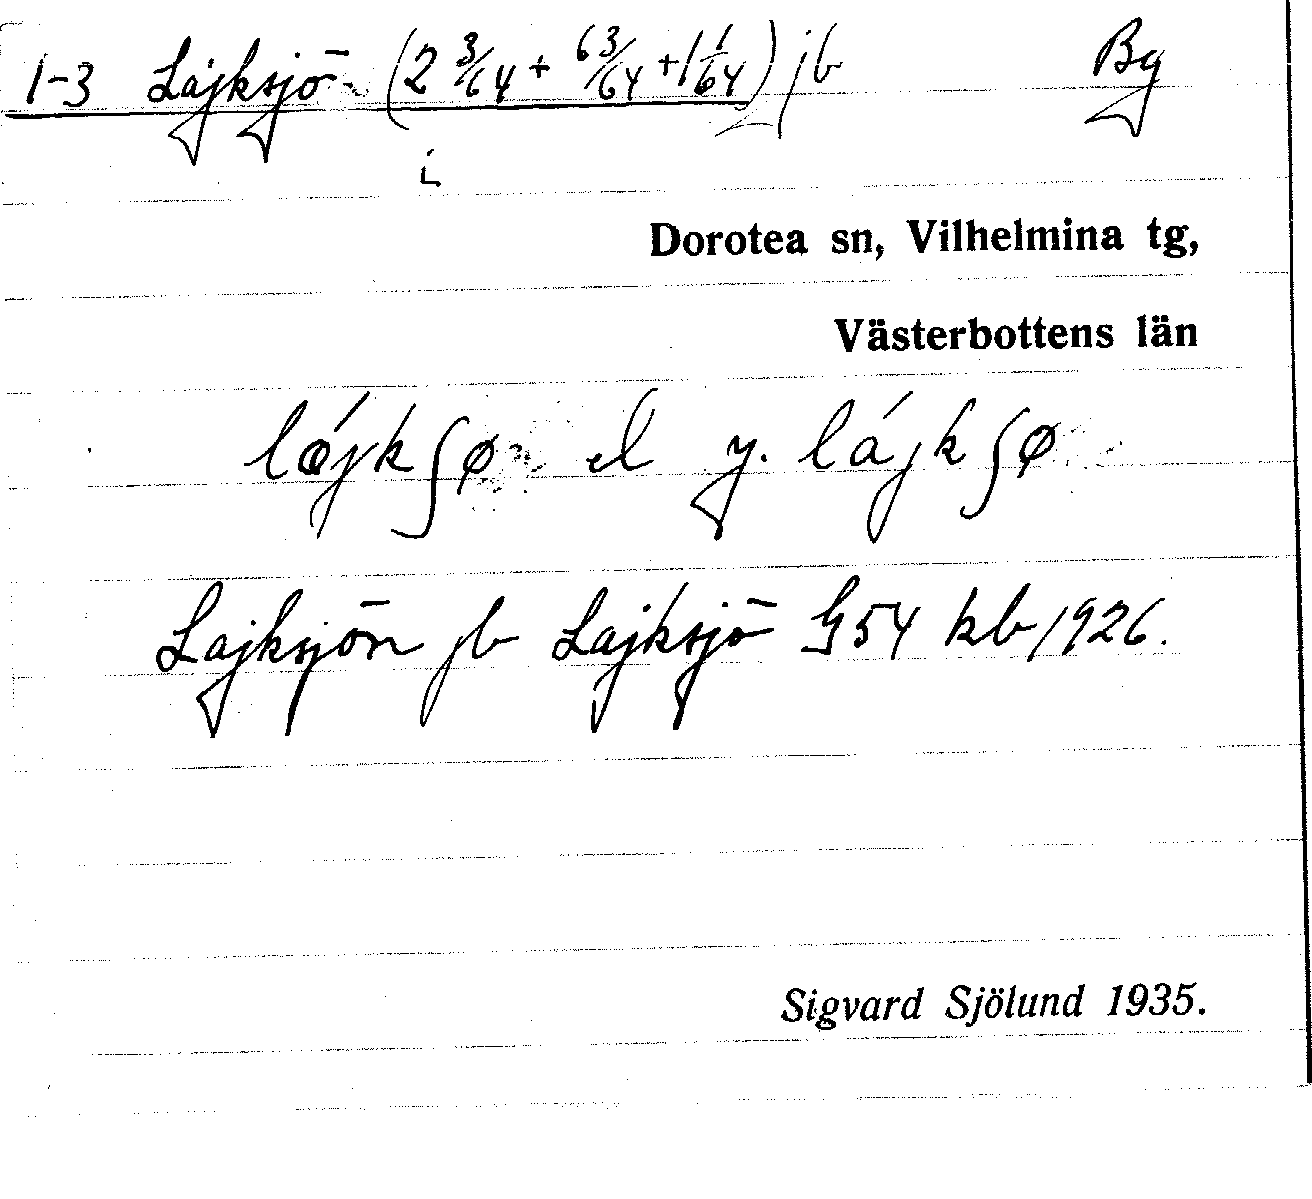 1-3 Lajksjö (2 3/64 + 6 3/64 + 1 1/64) jb By
i
Dorotea sn, Vilhelmina tg,
Västerbottens län
lǽjkʃø el y. lájkʃø
Lajksjön jb Lajksjö G54 kb 1926.
Sigvard Sjölund 1935.